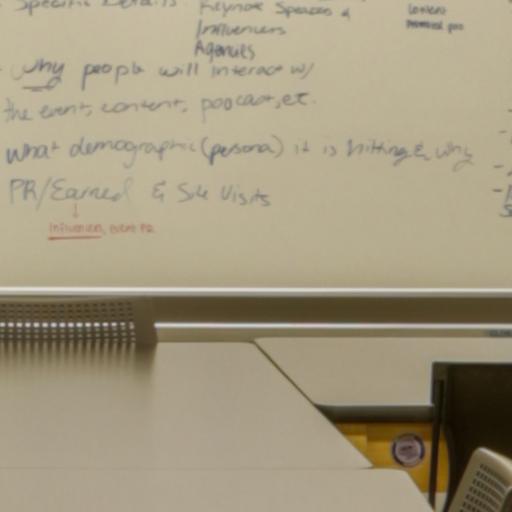 Specific Details: Keynote Speakers &
Influencers
Agencies
Content
why people will interact w/
the event, content, podcast, etc.
what demographic (persona) it is hitting & why
PR/Earned & Site Visits
Influencers, event PR